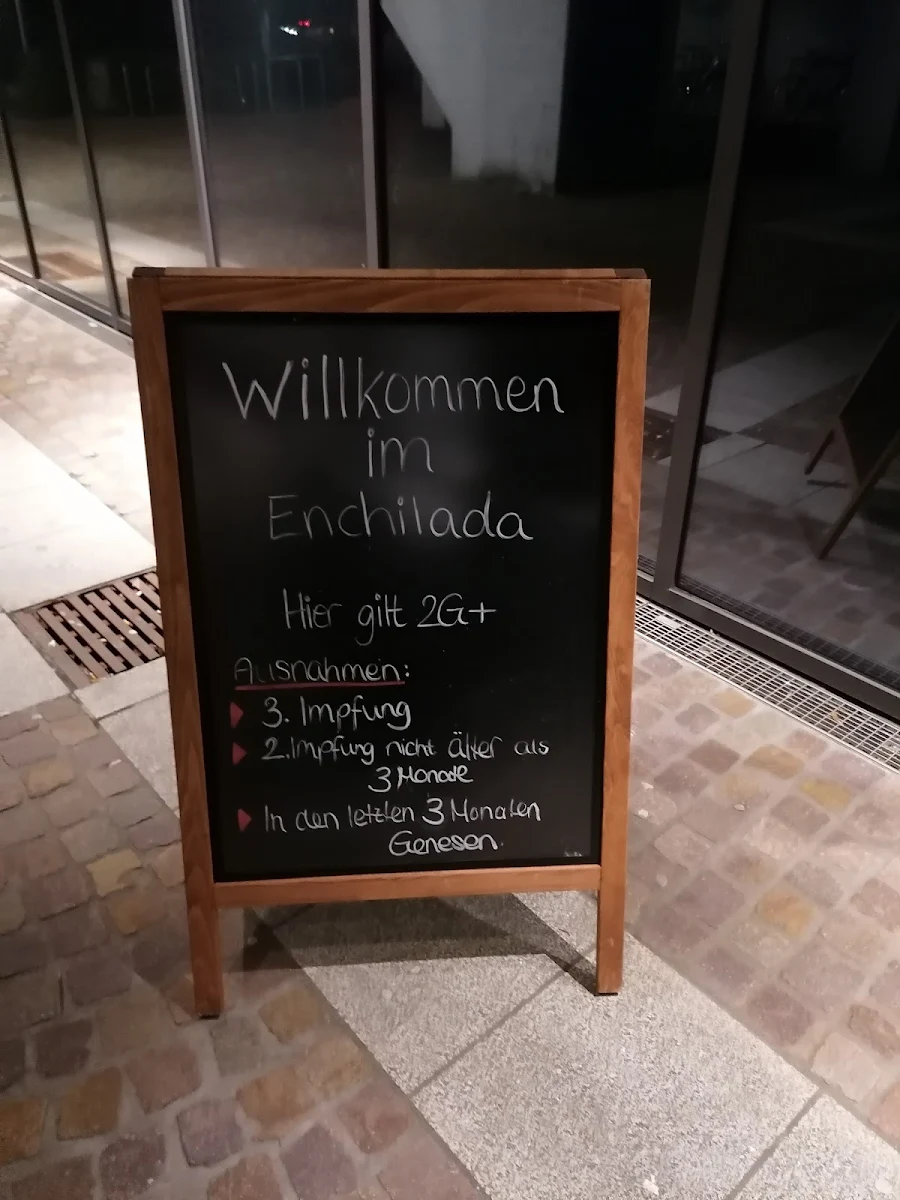 Willkommen
im
Enchilada
Hier gilt 2G+
Ausnahmen:
3. Impfung
2. Impfung nicht älter als
3 Monate
In den letzten 3 Monaten
Genesen.